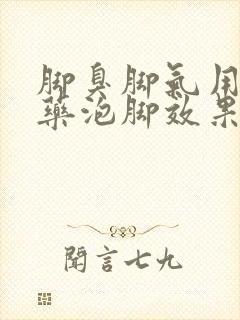 脚臭脚氣用
藥泡脚效果
聞言七九